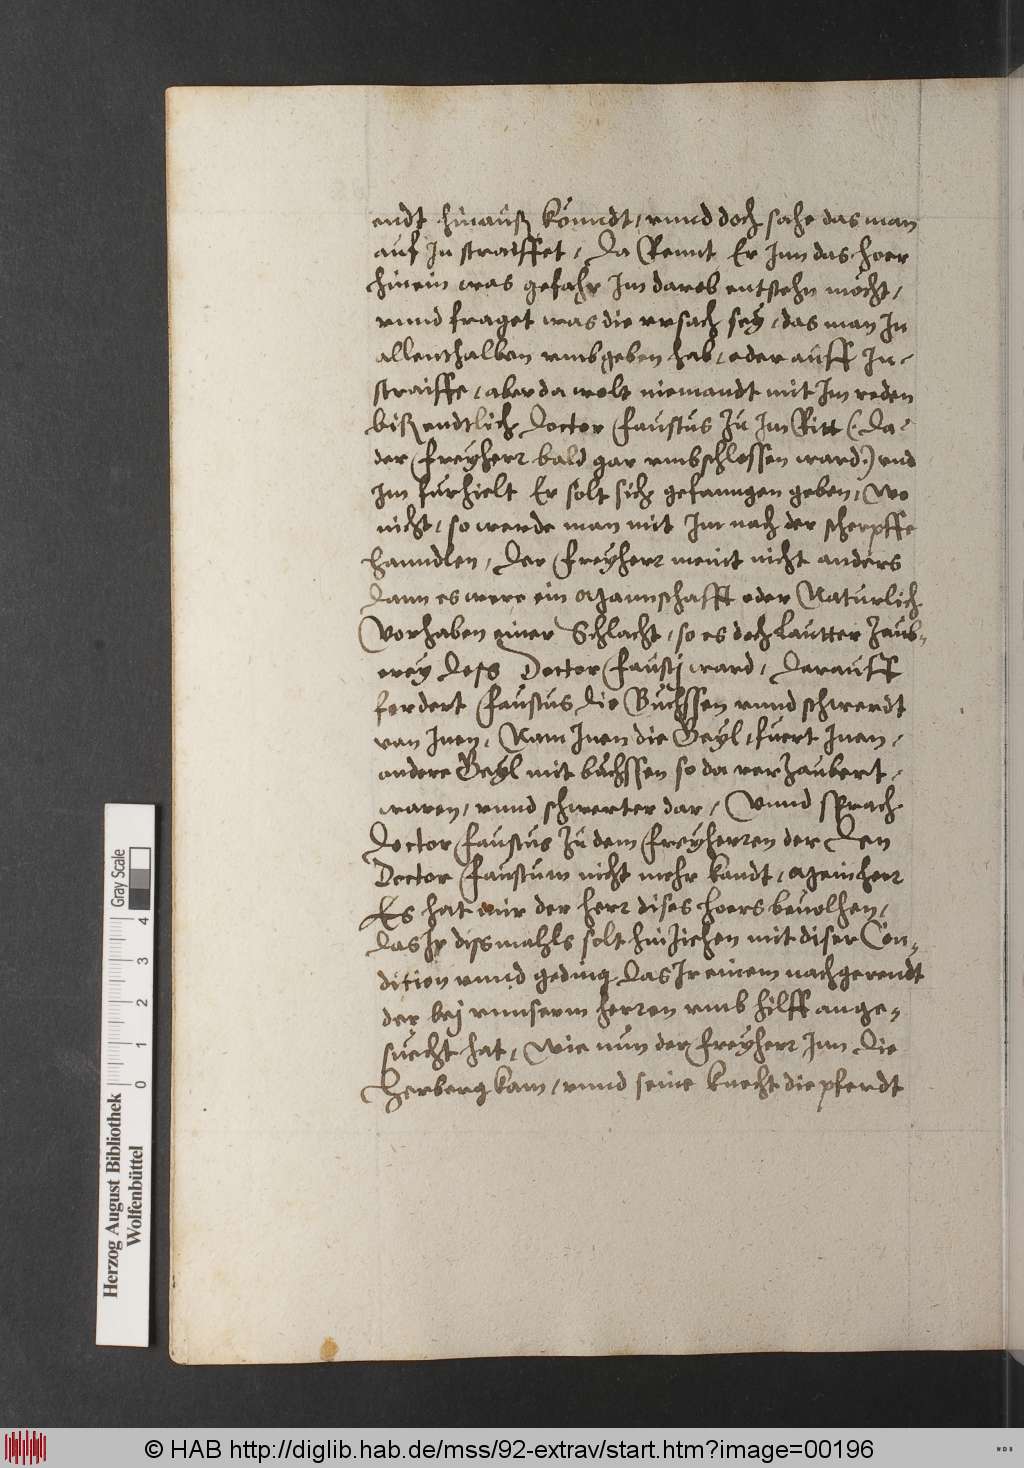 endt hinauß konndt, vnnd doch sahe das man
auf In straiffet, Da Rennt Er Inn das hoer
hinein was gefahr Im darob entstehn möcht,
vnnd fraget was die vrsach sey, das man In
allenthalben vmbgeben hab, oder auff In-
straiffe, aber da wolt niemandt mit Im reden
biß endtlich Doctor Faustus Zu Im Ritt (Da-
der Freyherr bald gar vmbschlossen ward) vnd
Im furhielt Er solt sich gefanngen geben, Wo
nicht, so werde man mit Im nach der scherpffe
hanndlen, Der Freyherr meint nicht anders
Dann es were ein Mannschafft oder Naturlich
Vorhaben einer Schlacht, so es doch Lautter Zaub-
erey Dess Doctor Faustj ward, Darauff
fordert Faustus Die Buchssen vnnd schwerdt
von Inen, Nam Inen die Geyl, fuert Inen,
andere Geyl mit buchssen so da verZaubert,
waren, vnnd schwerter dar, Vnnd sprach
Doctor Faustus Zu dem Freyherren der Den
Doctor Faustum nicht mehr kandt, Mein herr
Es hat mir der herr dises hoers beuolhen,
Das Ir dissmahls solt hinZiehen mit diser Con-
dition vnnd geding Das Ir einem nachgerendt
der bej vnnserm herren vmb hilff ange-
sucht hat, Wie nun der Freyherr Inn Die
Herberg kam, vnnd seine knecht die pferdt
Herzog August Bibliothek
Wolfenbüttel
0 1 2 3 4
Gray Scale
© HAB http://diglib.hab.de/mss/92-extrav/start.htm?image=00196
WDB